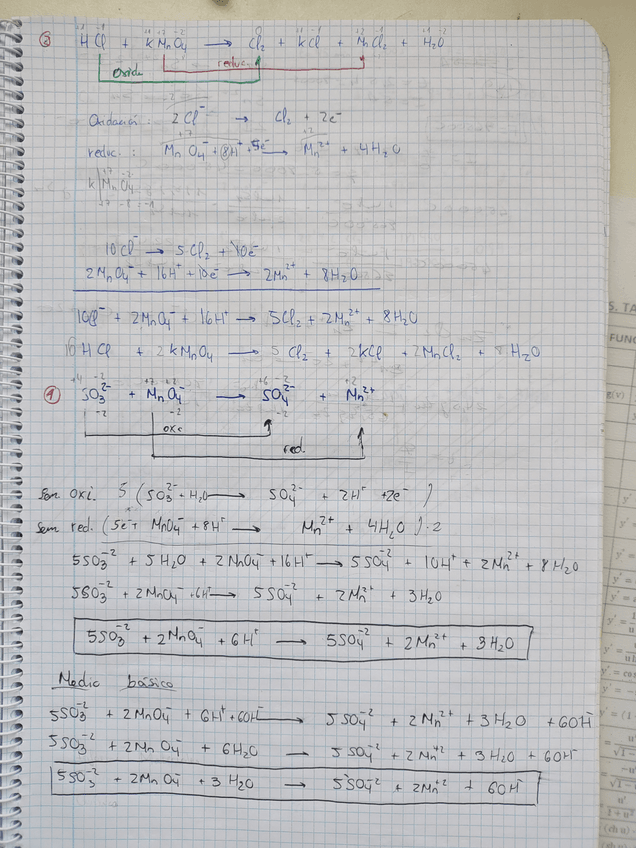 ② HCl + KMnO₄ → Cl₂ + KCl + MnCl₂ + H₂O
oxida reduc.
Oxidación: 2Cl⁻ → Cl₂ + 2e⁻
reduc.: MnO₄⁻ + 8H⁺ + 5e⁻ → Mn²⁺ + 4H₂O
K MnO₄
+7 -8 = -1
10Cl⁻ → 5Cl₂ + 10e⁻
2MnO₄⁻ + 16H⁺ + 10e⁻ → 2Mn²⁺ + 8H₂O
10Cl⁻ + 2MnO₄⁻ + 16H⁺ → 5Cl₂ + 2Mn²⁺ + 8H₂O
16HCl + 2KMnO₄ → 5Cl₂ + 2KCl + 2MnCl₂ + 8H₂O
SO₃²⁻ + MnO₄⁻ → SO₄²⁻ + Mn²⁺
oxi
red.
Sem oxi. 5 (SO₃²⁻ + H₂O → SO₄²⁻ + 2H⁺ + 2e⁻)
Sem red. (5e⁻ + MnO₄⁻ + 8H⁺ → Mn²⁺ + 4H₂O)·2
5SO₃⁻² + 5H₂O + 2MnO₄⁻ + 16H⁺ → 5SO₄⁻² + 10H⁺ + 2Mn²⁺ + 8H₂O
5SO₃⁻² + 2MnO₄⁻ + 6H⁺ → 5SO₄⁻² + 2Mn²⁺ + 3H₂O
5SO₃⁻² + 2MnO₄⁻ + 6H⁺ → 5SO₄⁻² + 2Mn⁺² + 3H₂O
Medio básico
5SO₃⁻² + 2MnO₄⁻ + 6H⁺ + 6OH⁻ → 5SO₄⁻² + 2Mn²⁺ + 3H₂O + 6OH⁻
5SO₃⁻² + 2MnO₄⁻ + 6H₂O → 5SO₄⁻² + 2Mn⁺² + 3H₂O + 6OH⁻
5SO₃⁻² + 2MnO₄⁻ + 3H₂O → 5SO₄⁻² + 2Mn⁺² + 6OH⁻